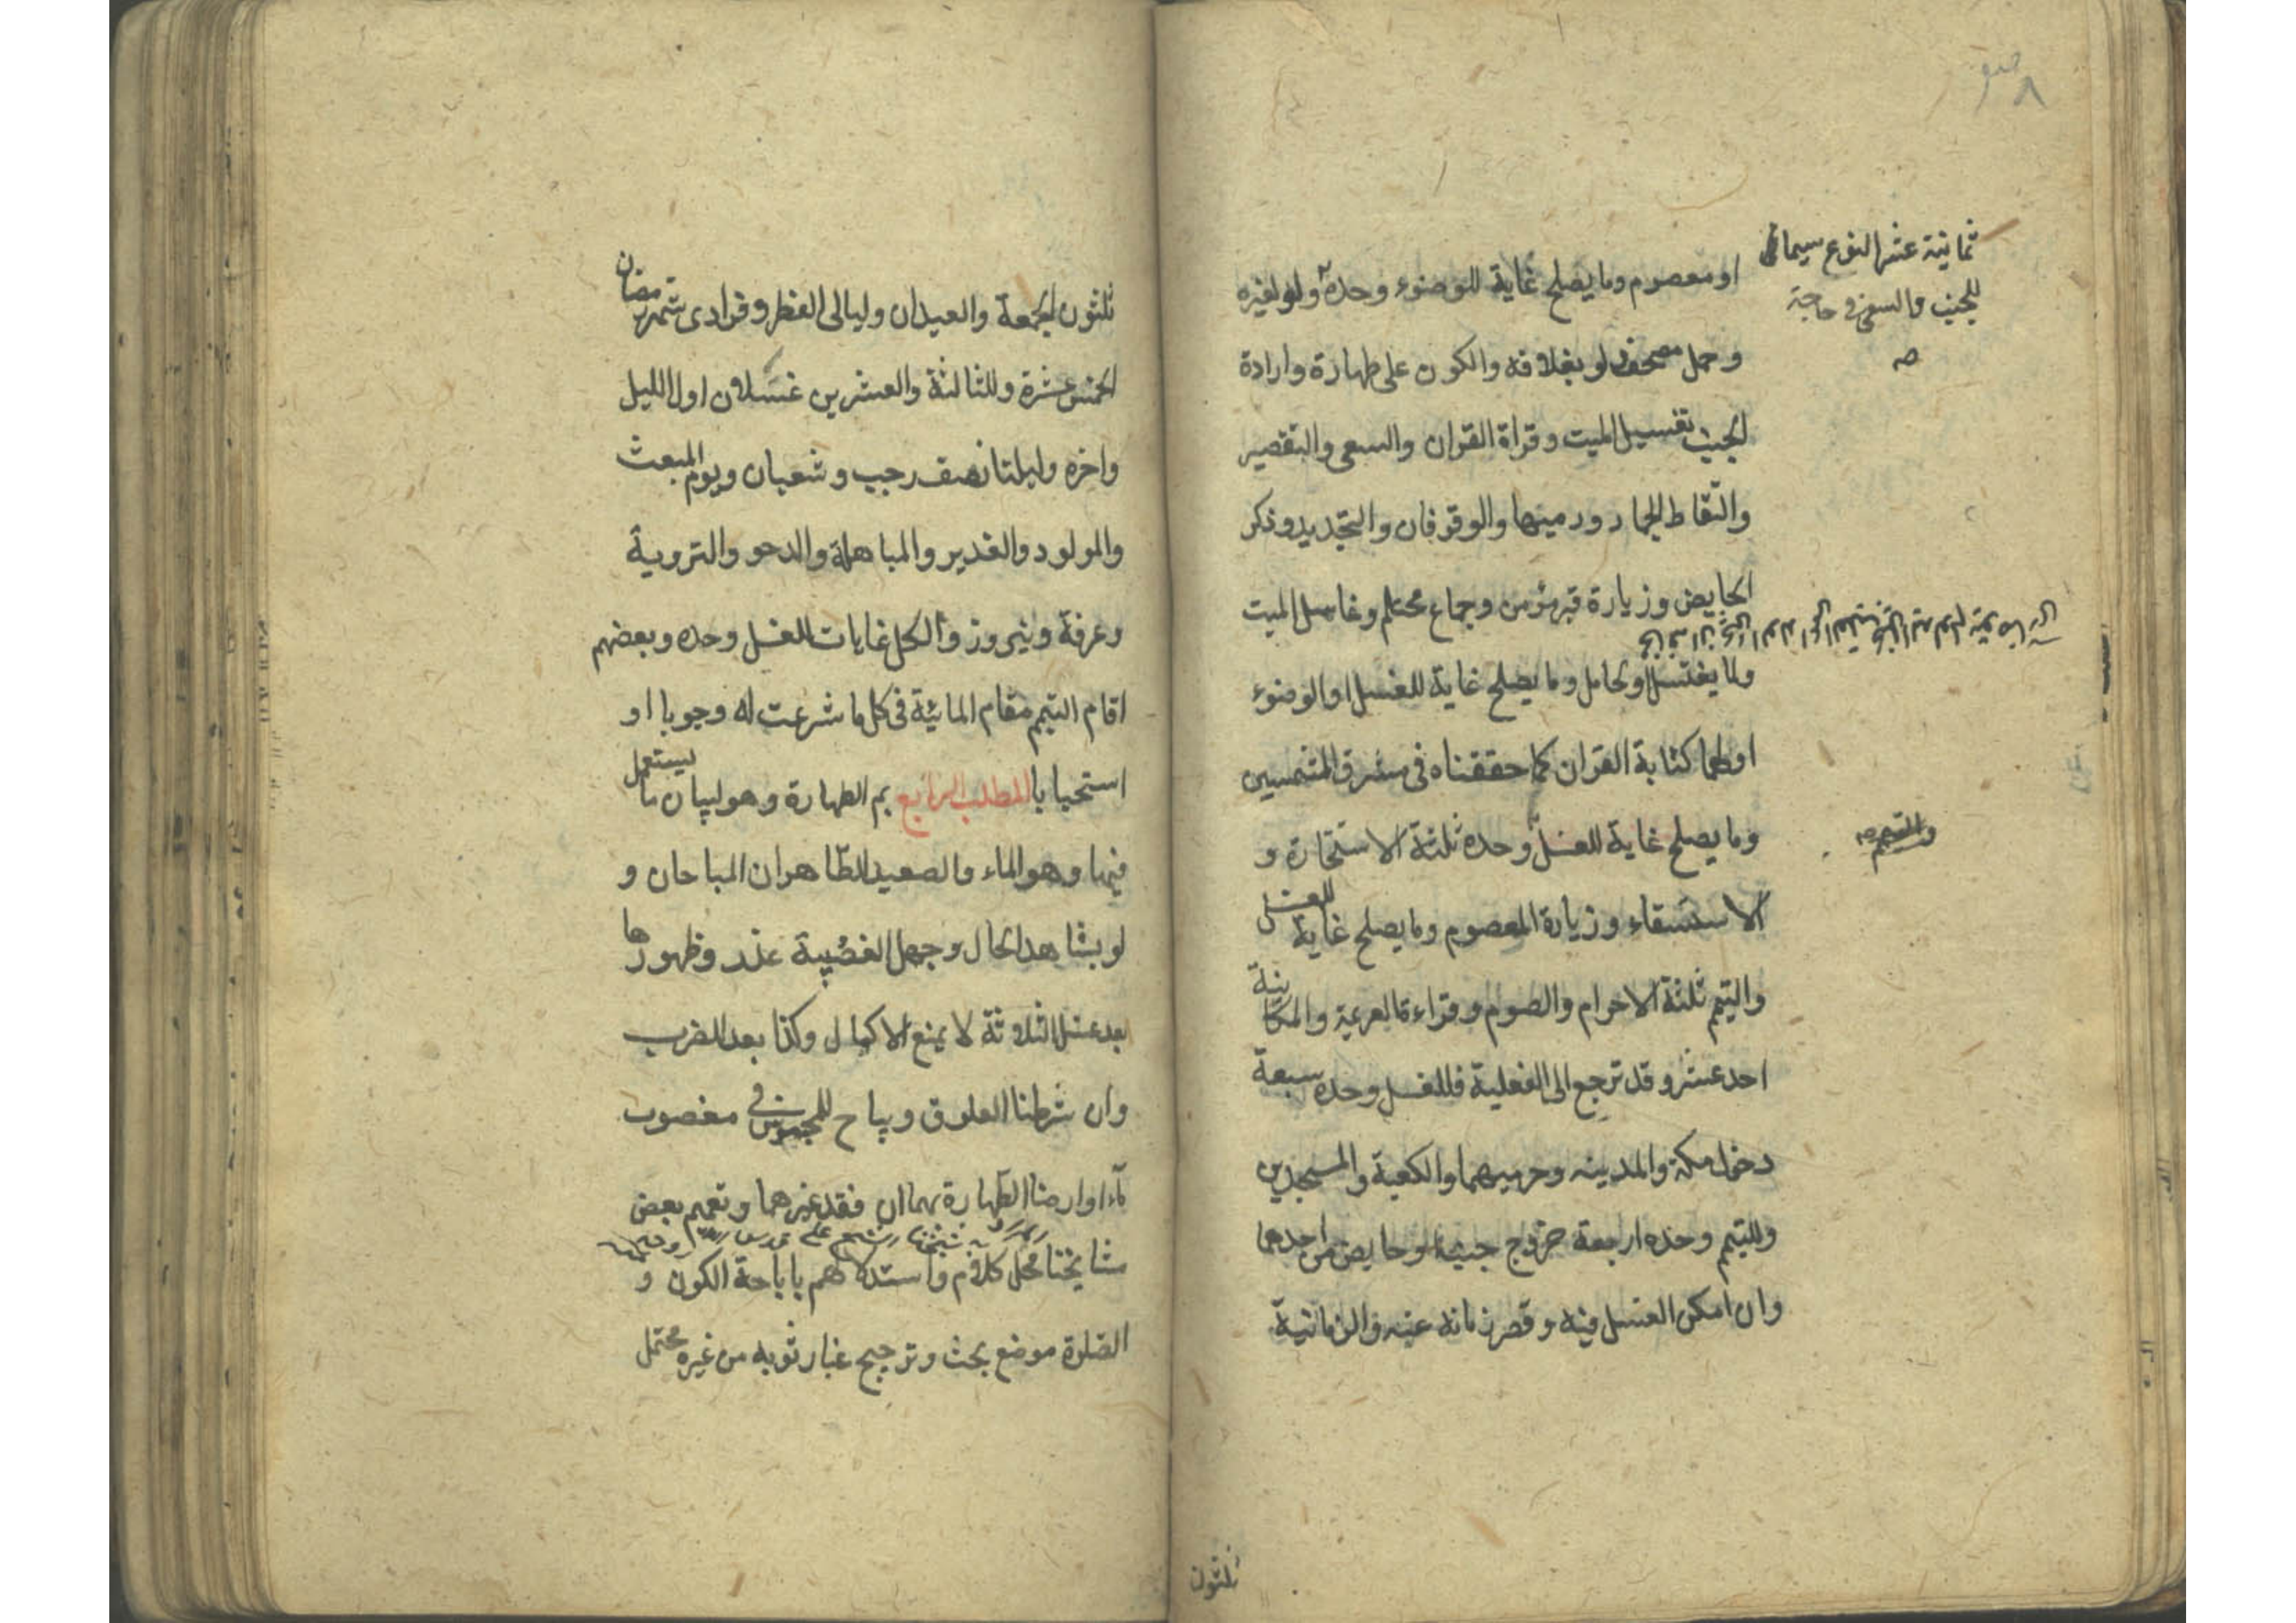 ثمانية عشر النوع سيما
للجنب والسعي في حاجة
صه
او معصوم وما يصلح غاية للوضوء وحده ولو لغيره
وحمل مصحف لو بغلافه والكون على طهارة وارادة
الجنب تغسيل الميت وقراة القران والسعي والتقصير
والتقاط الجمار ورميها والوقوفان والتجديد وذكر
الحايض وزيارة قبر مؤمن وجماع محتلم وغاسل الميت
ولما يغتسل ولحامل وما يصلح غاية للغسل او الوضوء
او لهما كتابة القران كما حققناه في مشرق الشمسين
وما يصلح غاية للغسل وحده ثلثة الاستخارة و
الاستسقاء وزيارة المعصوم وما يصلح غاية للغسل
والتيمم ثلثة الاحرام والصوم وقراءة العزيمة والمكانية
احد عشر وقد ترجع الى الفعلية فللغسل وحده سبعة
دخول مكة والمدينه وحرميهما والكعبة والمسجدين
وللتيمم وحده اربعة خروج جنب او حايض من احدهما
وان امكن الغسل فيه وقصر زمانه عنه والزمانية
ثلثون
ثلثون الجمعة والعيدان وليالي الفطر وفرادى شهر رمضان
الخمس عشرة وللثالثة والعشرين غسلان اول الليل
واخره وليلتا نصف رجب وشعبان ويوم المبعث
والمولود والغدير والمباهلة والدحو والتروية
وعرفة ونيروز والكل غايات للغسل وحده وبعضهم
اقام التيمم مقام المائية في كل ما شرعت له وجوبا او
استحبابا المطلب الرابع بم الطهارة وهو لبيان ما يستعمل
فيها وهو الماء والصعيد الطاهران المباحان و
لو بشاهد الحال وجهل الغصبية عذر وظهورها
بعد غسل الثلاثة لا يمنع الاكمال وكذا بعد الضرب
وان شرطنا العلوق ويباح للمحبوس في مغصوب
ماء او ارضا الطهارة بهما ان فقد غيرهما وتعميم بعض
مشايخنا محل كلام واستدلالهم باباحة الكون و
الصلوة موضع بحث وترجيح غبار ثوبه من غيره محتمل